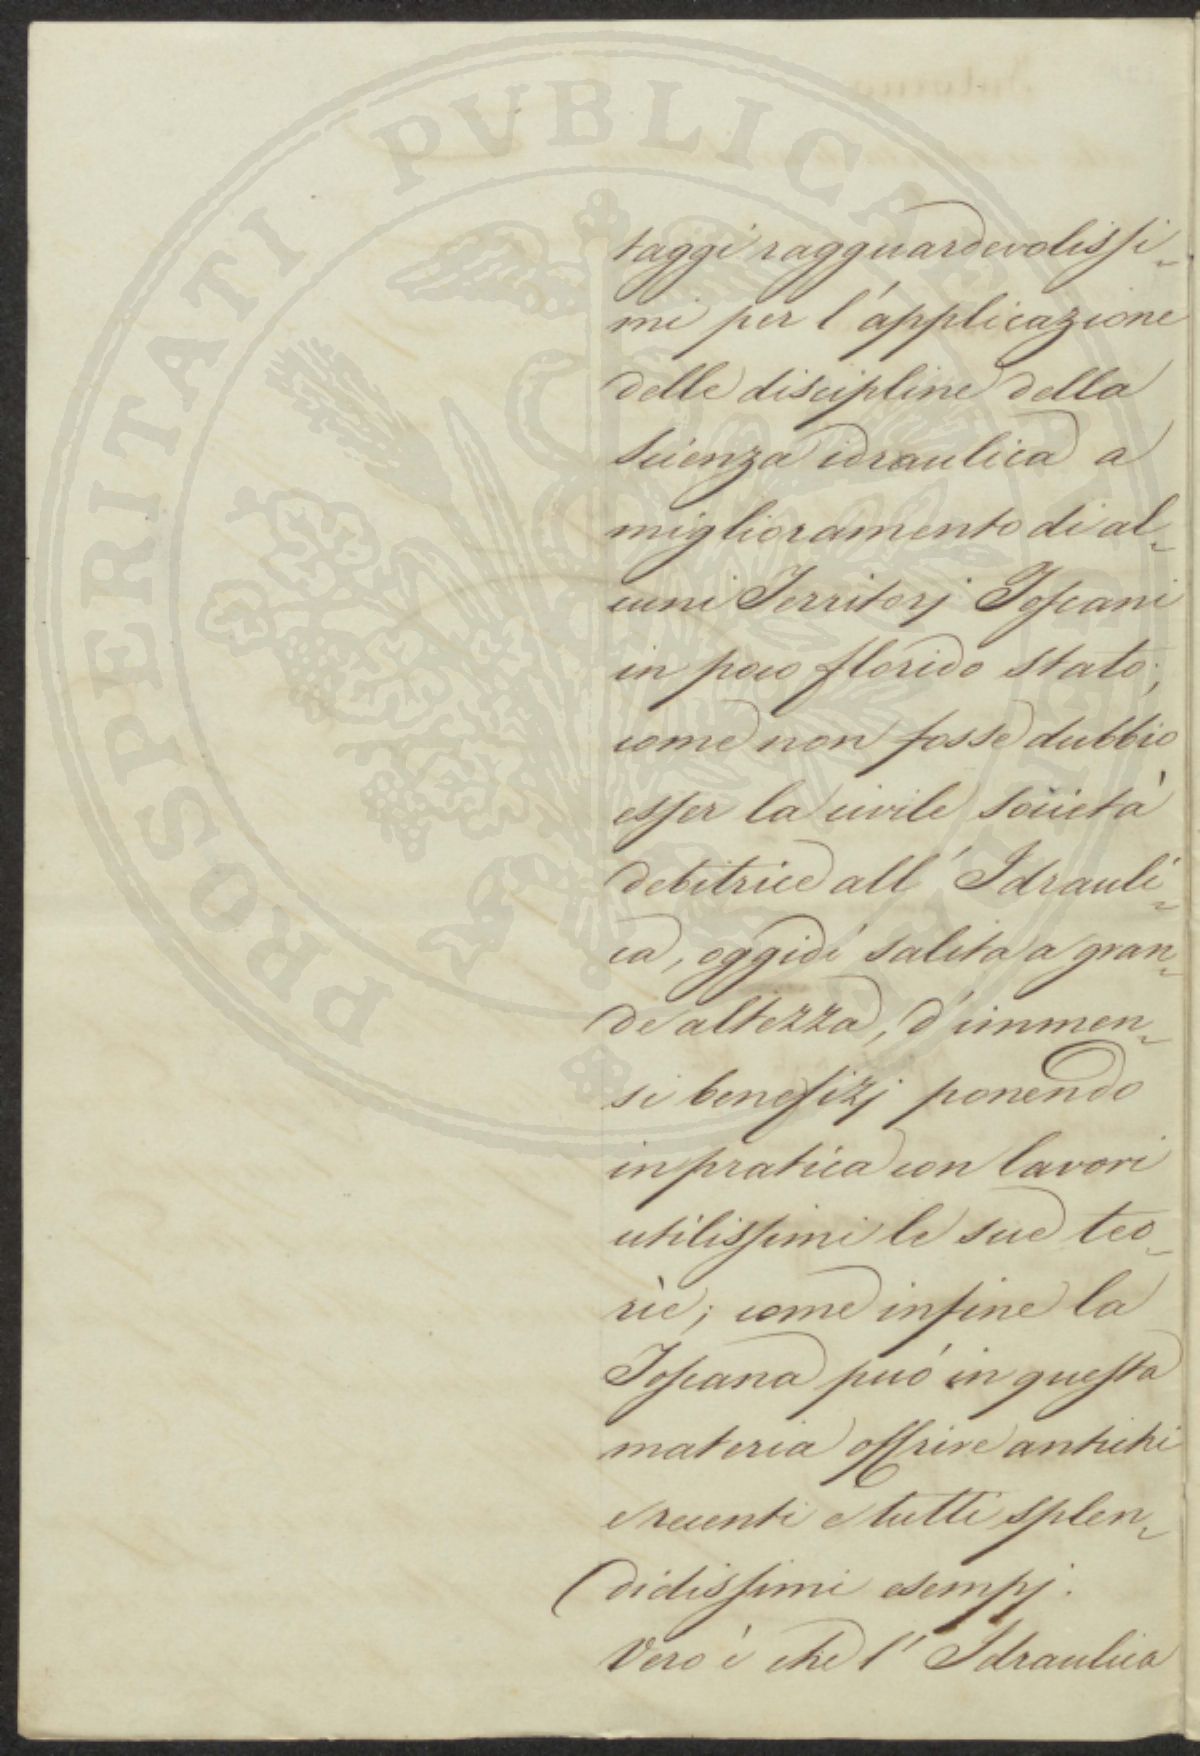 PROSPERITATI PUBLICAE AUGENDAE
taggi ragguardevolissi-
mi per l'applicazione
delle discipline della
Scienza idraulica a
miglioramento di al-
cuni Territorj Toscani
in poco florido stato;
come non fosse dubbio
esser la civile società
debitrice all'Idrauli-
ca, oggidì salita a gran-
de altezza, d'immen-
si benefizj ponendo
in pratica con lavori
utilissimi le sue teo-
rie; come infine la
Toscana può in questa
materia offrire antichi
e recenti e tutti splen-
didissimi esempj.
Vero è che l'Idraulica